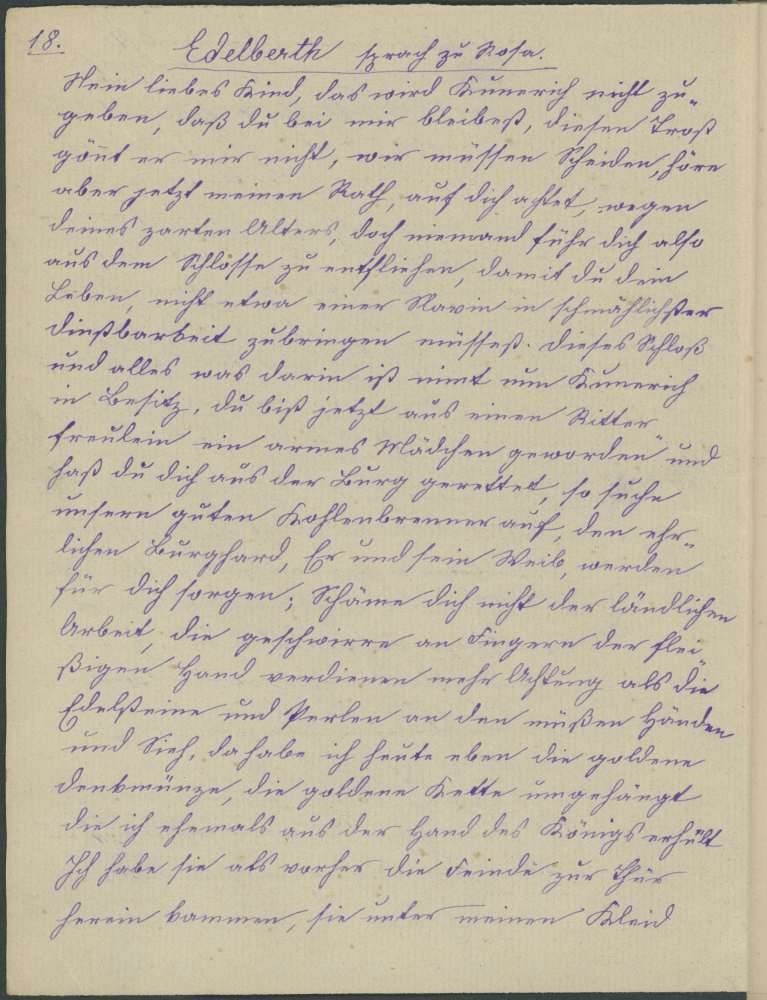 18.
Edelberth sprach zu Rosa.
Mein liebes Kind, das wird Kunerich nicht zu-
geben, daß du bei mir bleibest, diesen Trost
gönt er mir nicht, wir müssen Scheiden, höre
aber jetzt meinen Rath, auf dich achtet, wegen
deines zarten Alters, doch niemand führ dich also
aus dem Schlosse zu entfliehen, damit du dein
Leben, nicht etwa einer Slavin in schmählichster
dinstbarkeit zubringen müssest. dieses Schloß
und alles was darin ist nimt nun Kunerich
in Besitz, du bist jetzt aus einen Ritter
freulein ein armes Mädchen geworden und
hast du dich aus der Burg gerettet, so suche
unsern guten Kohlenbrenner auf, den ehr-
lichen Burghard, Er und sein Weib, werden
für dich sorgen; Schäme dich nicht der ländlichen
Arbeit, die geschwirre an Fingern der flei
ßigen Hand verdienen mehr Achtung als die
Edelsteine und Perlen an den müßen Händen
und Sieh, da habe ich heute eben die goldene
denkmünze, die goldene Kette umgehängt
die ich ehemals aus der Hand des Königs erhült
Ich habe sie als vorher die Feinde zur Thür
herein kammen, sie unter meinen Kleid